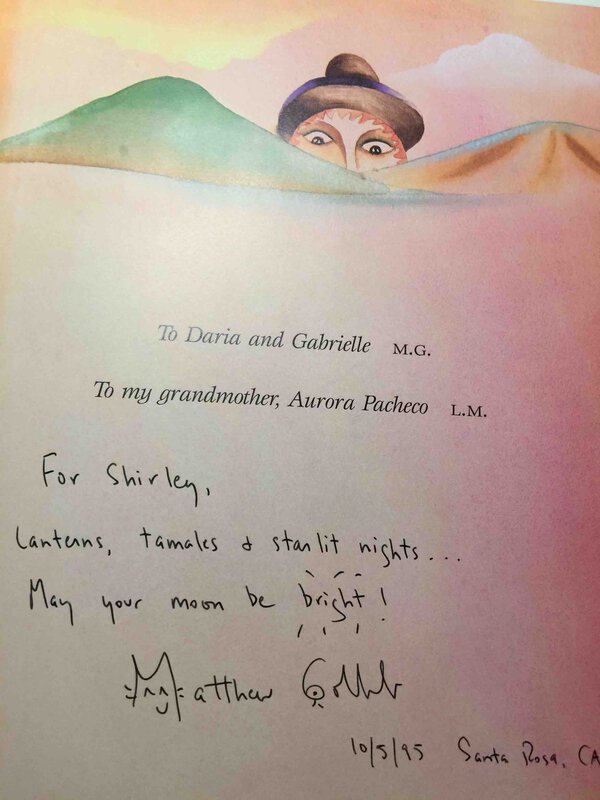 To Daria and Gabrielle M.G.
To my grandmother, Aurora Pacheco L.M.
For Shirley,
Lanterns, tamales & starlit nights...
May your moon be bright!
Matthew Gollub
10/5/95 Santa Rosa, CA